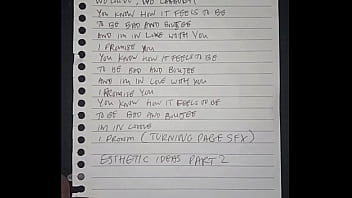 YOU KNOW HOW IT FEELS TO BE
TO BE BAD AND BOUJEE
AND IM IN LOVE WITH YOU
I PROMISE YOU
YOU KNOW HOW IT FEELS TO BE
TO BE BAD AND BOUJEE
AND IM IN LOVE WITH YOU
I PROMISE YOU
YOU KNOW HOW IT FEELS TO BE
TO BE BAD AND BOUJEE
IM IN LOVE
I PROMISE (TURNING PAGE SFX)
ESTHETIC IDEAS PART 2